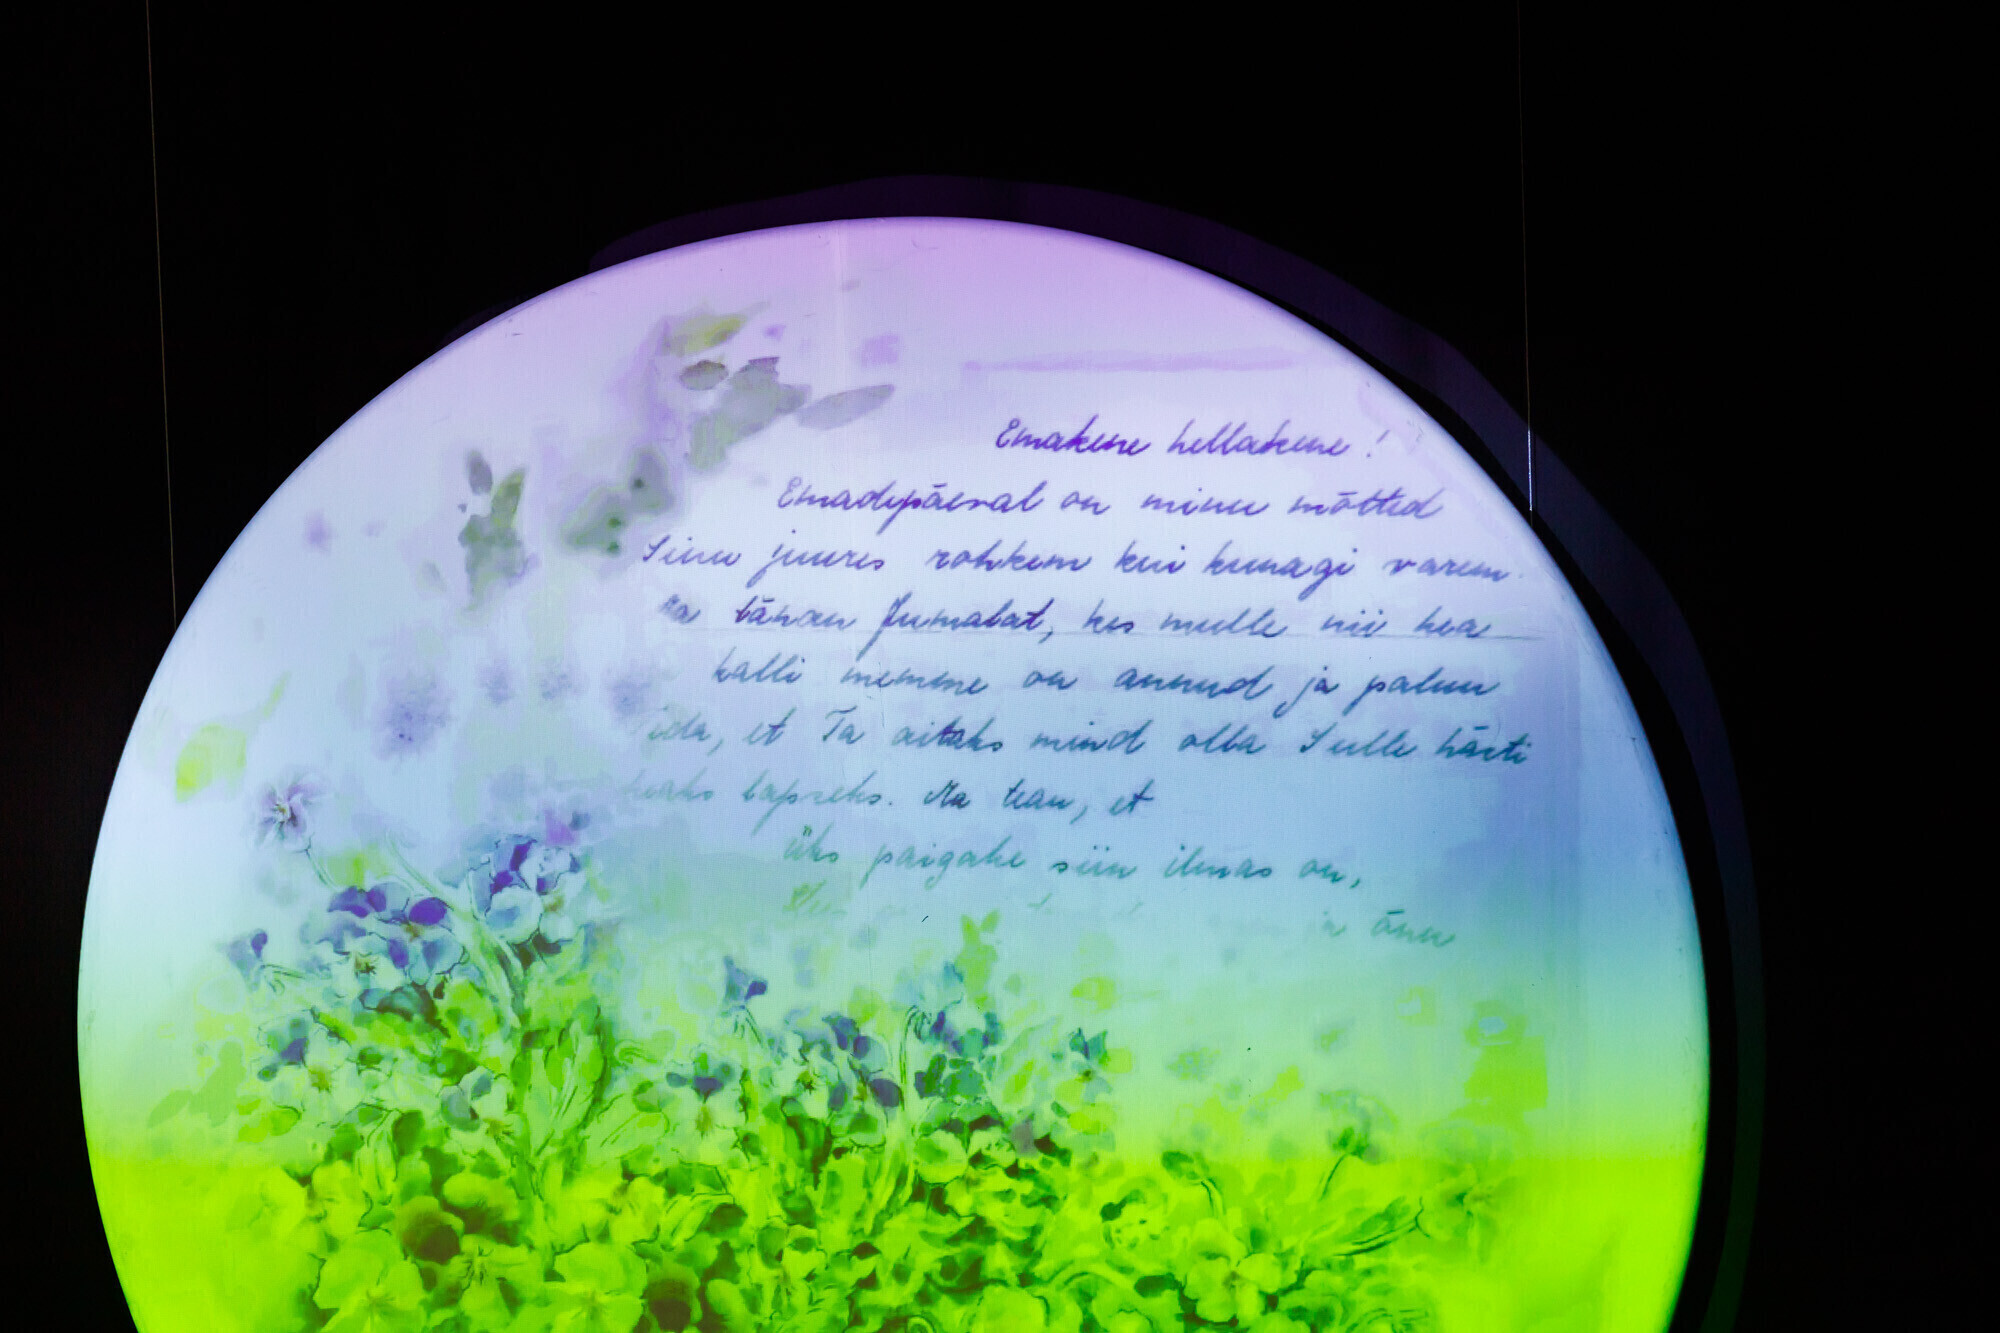 Emakene hellakene!
Emadepäeval on minu mõtted
Sinu juures rohkem kui kunagi varem.
Ma tänan Jumalat, kes mulle nii hea
kalli memme on annud ja palun
Teda, et Ta aitaks mind olla Sulle hästi
heaks lapseks. Ma tean, et
üks paigake siin ilmas on,
ja õnn